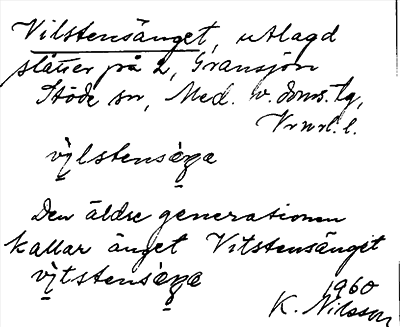 Vilstensänget, utlagd
slåtter på 2, Gransjön
Stöde sn, Med. v. doms. tg,
Vrnrl. l.
vilstensäŋa
Den äldre generationen
kallar änget Vitstensänget
vitstensäŋa
1960
K. Nilsson